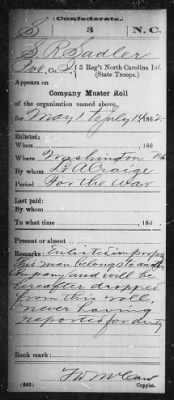 Confederate.
S 3 N.C.
S. R. Sadler
Pvt, Co. 3 Reg't North Carolina Inf.
(State Troops.)
Appears on
Company Muster Roll
of the organization named above,
for May 1 to July 1, 1862.
Enlisted:
When 186
Where Washington NC
By whom Craige
Period For the War
Last paid:
By whom
To what time , 186 .
Present or absent
Remarks: Enlisted improp
this man belongs to another
company and will be
hereafter dropped
from this roll,
never having
reported for duty
Book mark:
(642) Copyist.